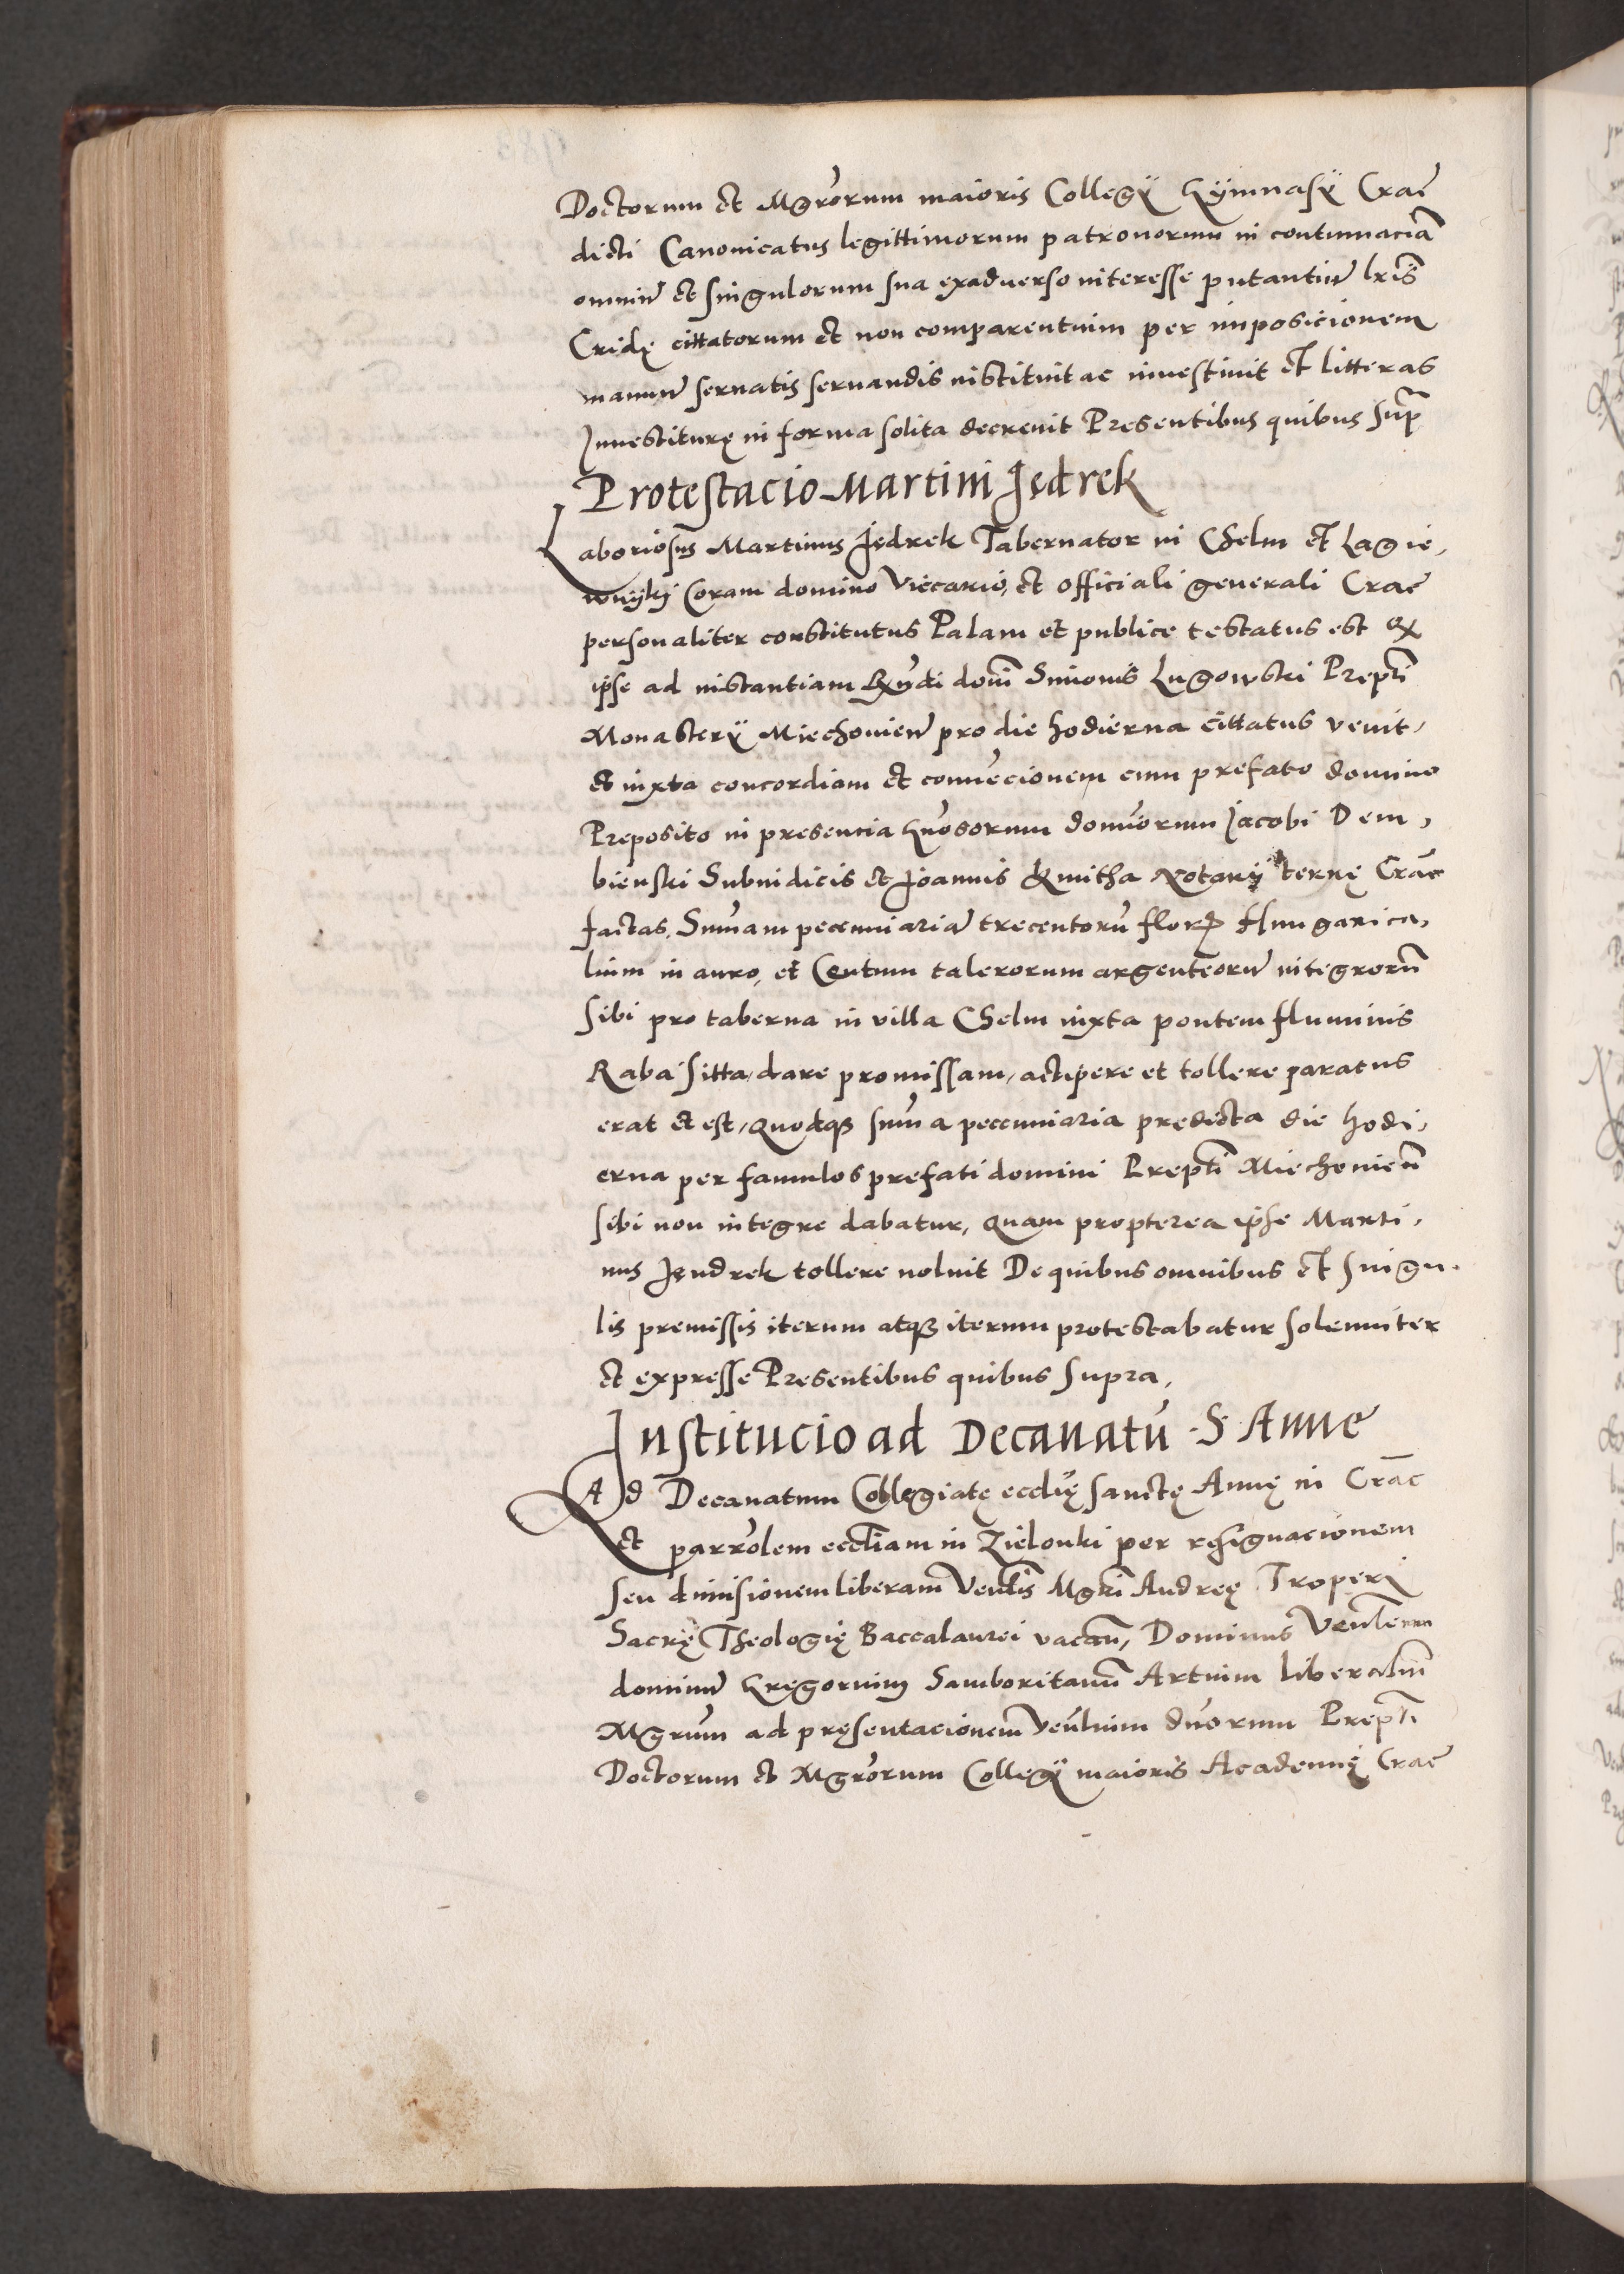 Doctorum et Mgrorum maioris Collegÿ Gÿmnasÿ Crac̄
dicti Canonicatus legittimorum patronorum in contumaciā
omniū et singulorum sua exaduerso interesse putantiū lrīs
Cridę cittatorum et non comparentium per imposicionem
manuū seruatis seruandis instituit ac inuestiuit et litteras
Inuestiturę in forma solita decreuit Presentibus quibus sup̄
Protestacio Martini Jędrek
Laboriosus Martinus Jędrek Tabernator in Chelm et Lagie,
wnÿkj Coram domino Viccario, et officiali generali Crac̄
personaliter constitutus Palam et publice testatus est Qꝫ
ipse ad instantiam Rndi domī Simonis Lugowski Prepti
Monasterÿ Miechouien̄ pro die hodierna cittatus venit,
et iuxta concordiam et conuēcionem cum prefato domino
Preposito in presencia Gnosorum domūorum Jacobi Dem,
bienski Subiudicis et Joannis Kmitha Notarÿ terrę Crac̄
factas, Sum̄am pecuniariā trecentorū flor̄ Hungarica,
lium in auro, et Centum talerorum argenteorū integrorū
sibi pro taberna in villa Chelm iuxta pontem fluminis
Raba sitta, dare promissam, accipere et tollere paratus
erat et est, Quodqꝫ sum̄a peccuniaria predicta die hodi,
erna per famulos prefati domini Prepti Miechouien̄
sibi non integre dabatur, Quam propterea ipse Marti,
nus Jęndrek tollere noluit De quibus omnibus et singu,
lis premissis iterum atqꝫ iterum protestabatur solenniter
et expresse Presentibus quibus supra,
Institucio ad Decanatū S. Anne
Ad Decanatum Collegiatę ecclīę sanctę Annę in Crac̄
et parrōlem eccliam in Zielonki per resignacionem
seu dimisionem liberam Venlis Mgri Andreę Troperi
Sacrę Theologię Baccalaurei vacan̄, Dominus Venlem
dominū Gregorium Samboritanū Artium liberaliū
Mgrum ad pręsentacionem Venlium dnorum Prepti
Doctorum et Mgrorum Collegÿ maioris Academię Crac̄